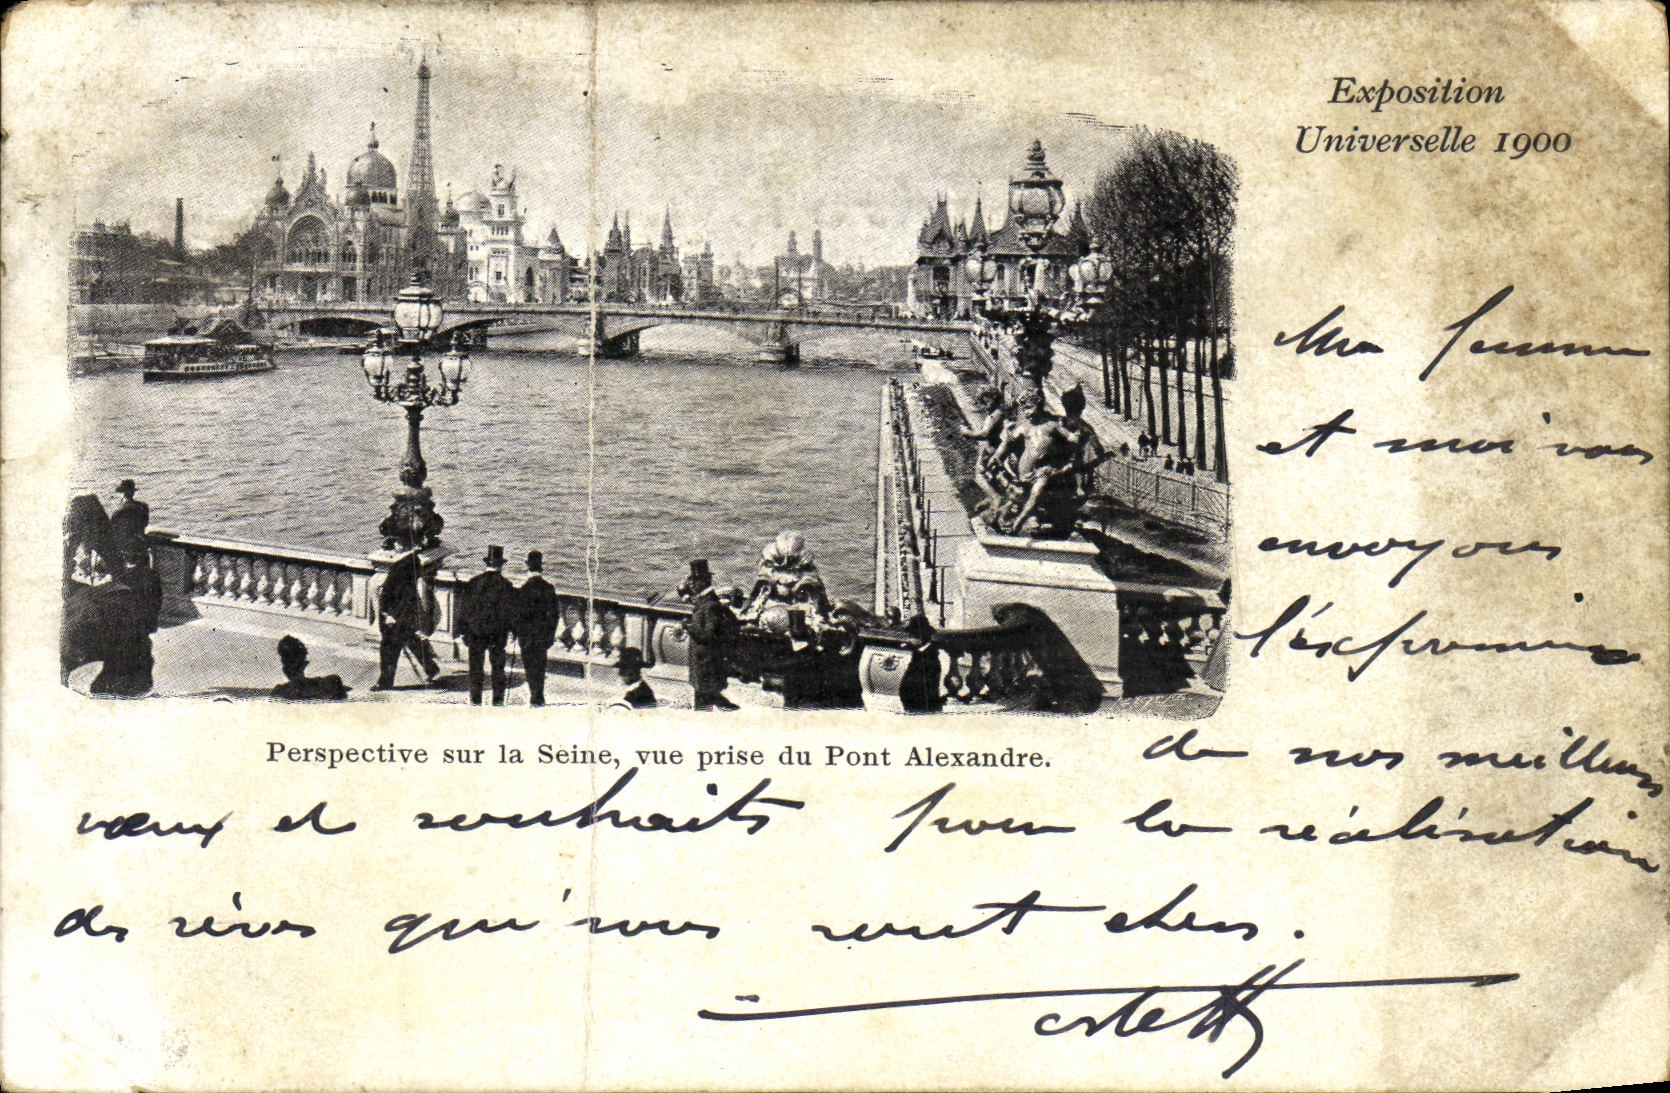 Exposition
Universelle 1900
Perspective sur la Seine, vue prise du Pont Alexandre.
Ma femme
et moi vous
envoyons
l'expression
de nos meilleurs
vœux et souhaits pour la réalisation
des rêves qui vous sont chers.